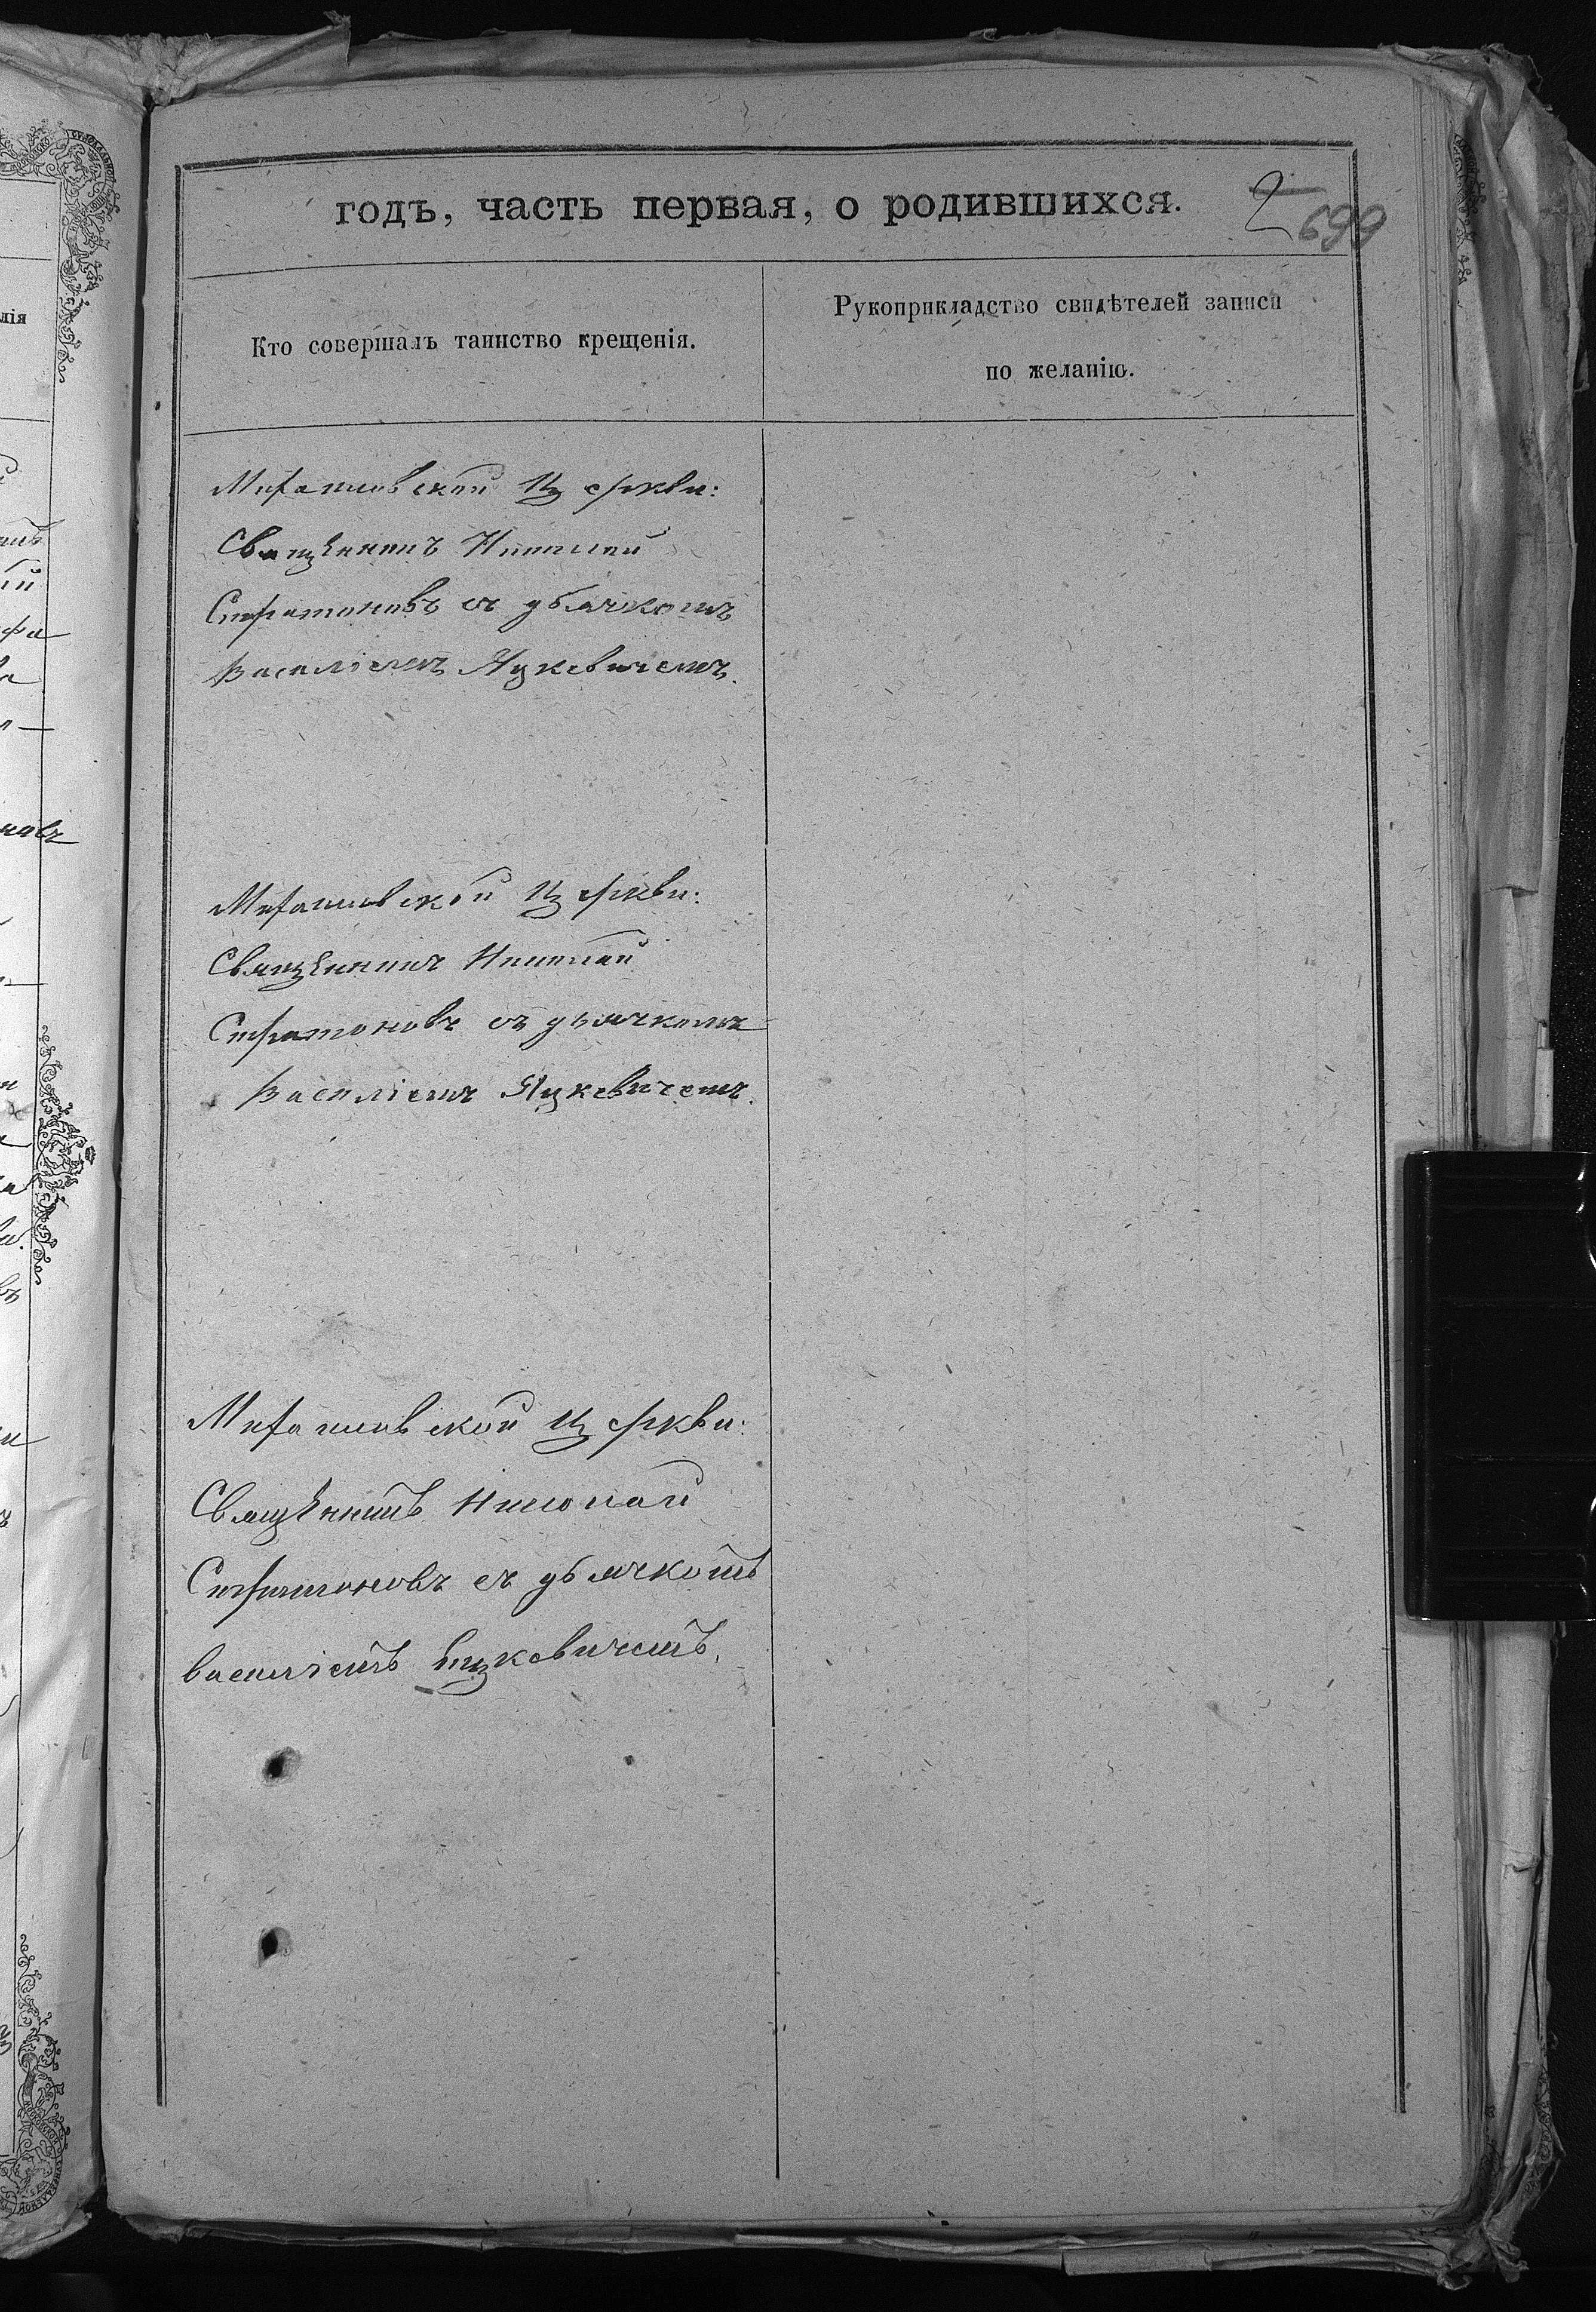 годъ, часть первая, о родившихся.
2
699
Кто совершалъ таинство крещенія.
Рукоприкладство свидѣтелей записи
по желанію.
церкви:
Священникъ Николай
Стратоновъ съ дьячкомъ
Василіемъ Яцкевичемъ.
церкви:
Священникъ Николай
Стратоновъ съ дьячкомъ
Василіемъ Яцкевичемъ.
церкви:
Священникъ Николай
Стратоновъ съ дьячкомъ
Василіемъ Яцкевичемъ.